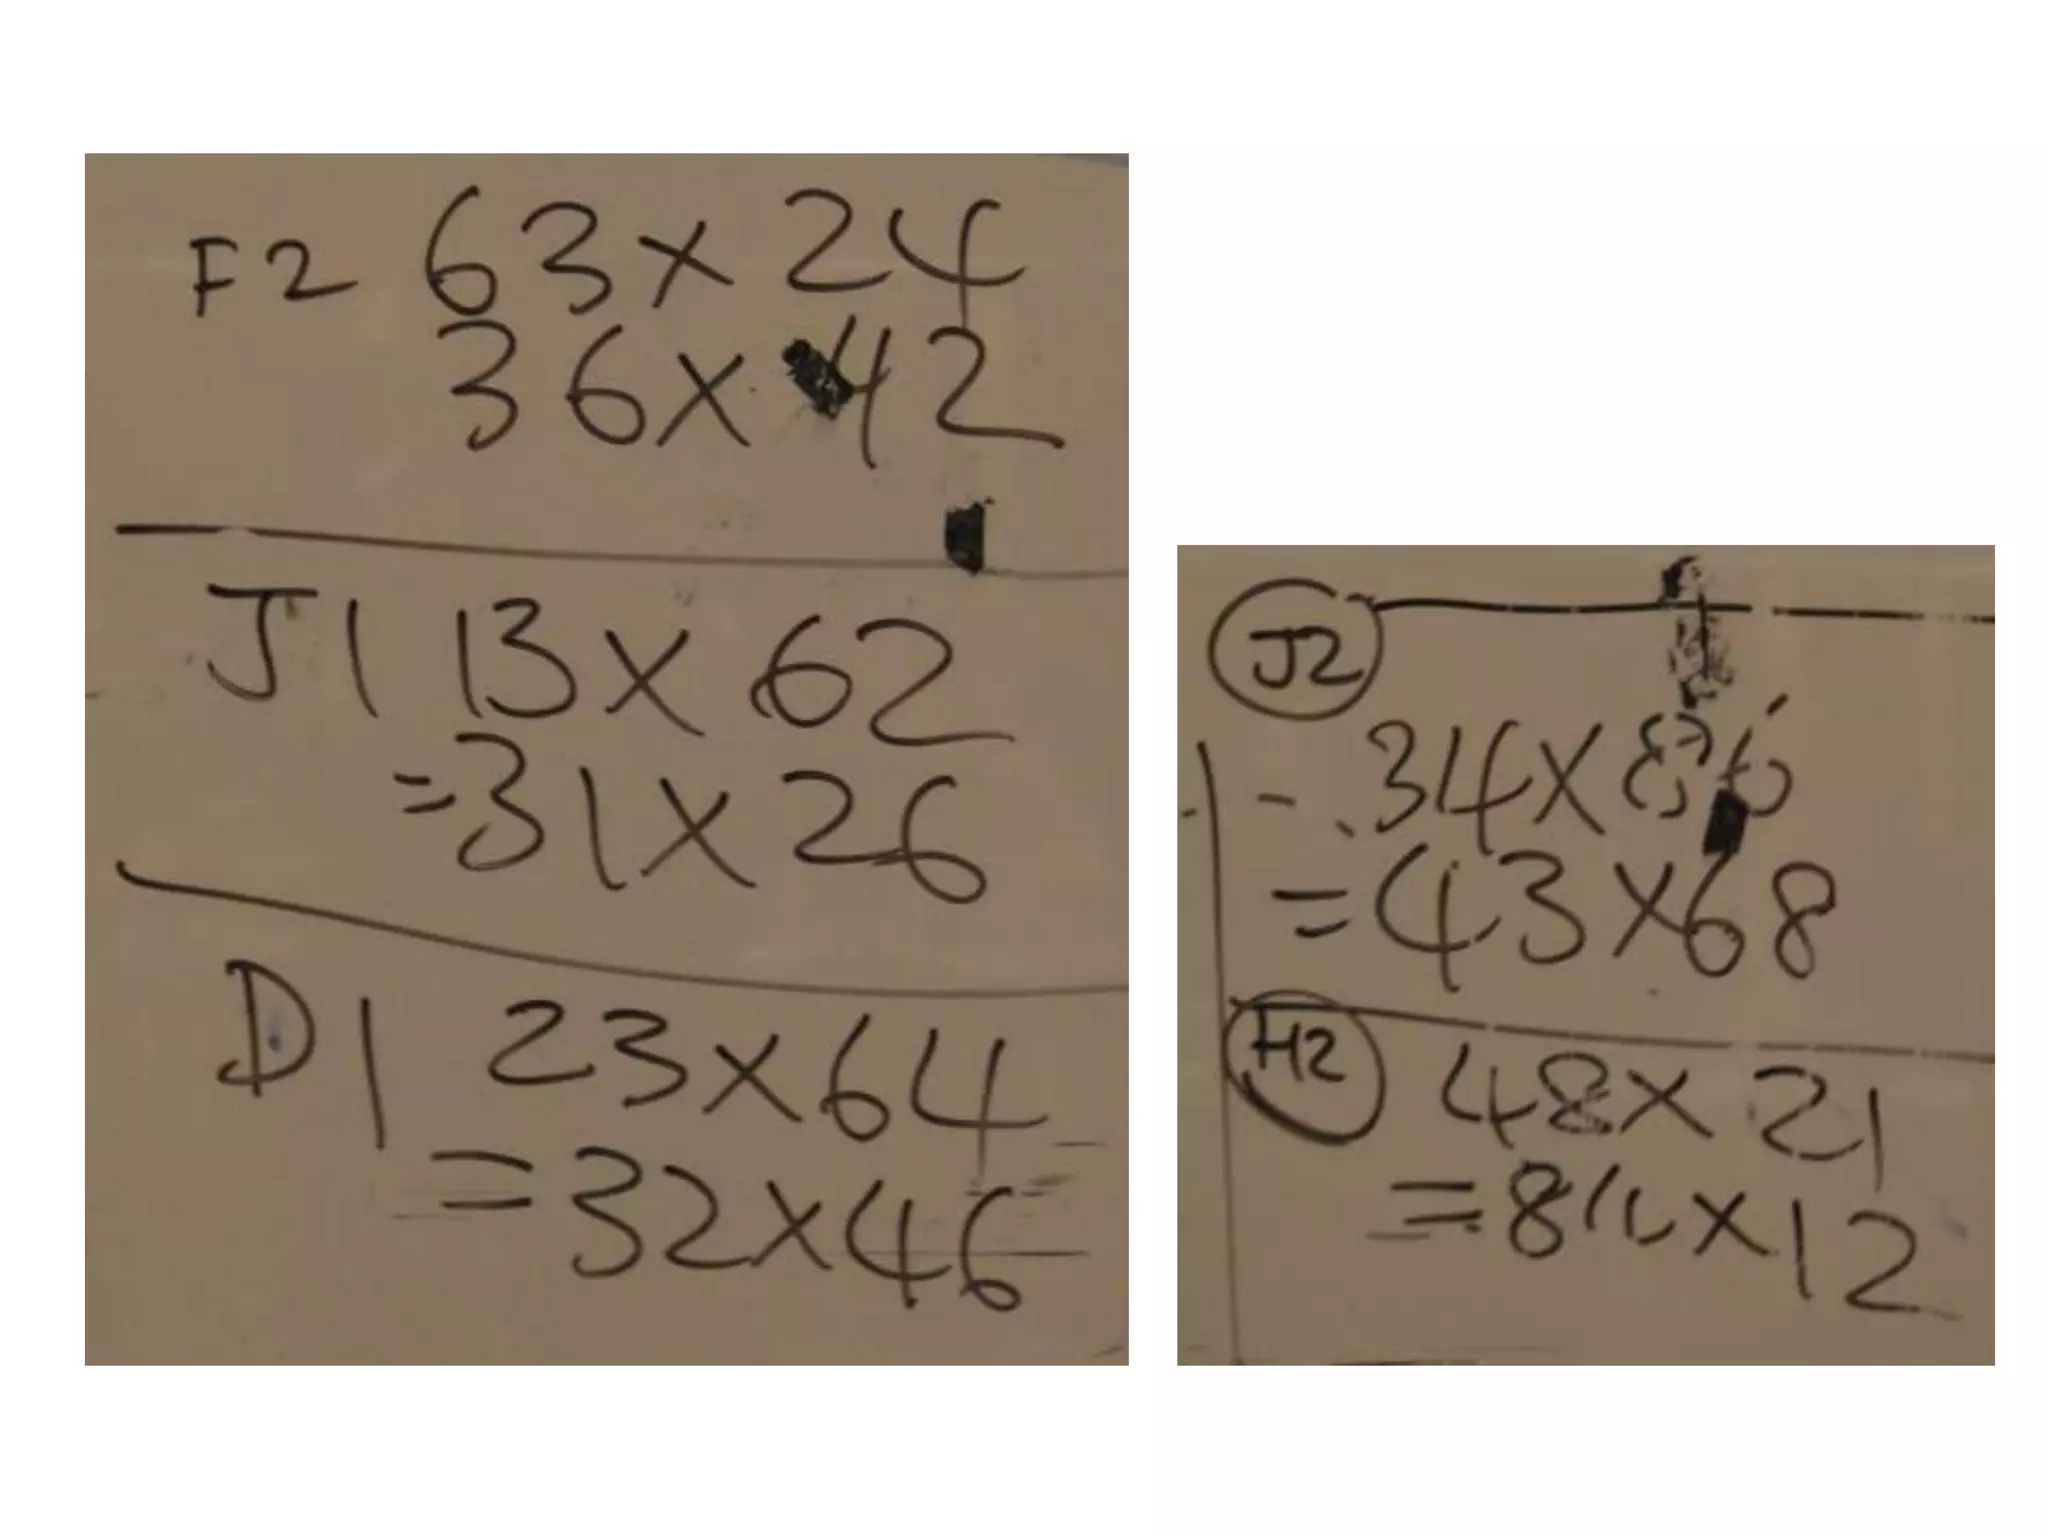 F2 63 x 24
36 x 42
J1 13 x 62
= 31 x 26
D1 23 x 64
= 32 x 46
J2
34 x 86
= 43 x 68
H2 48 x 21
= 84 x 12